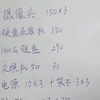 摄像头 150×3
硬盘录像机 150
1000G硬盘 290
交换机50 30
电源 10×3 + 支架 3×3